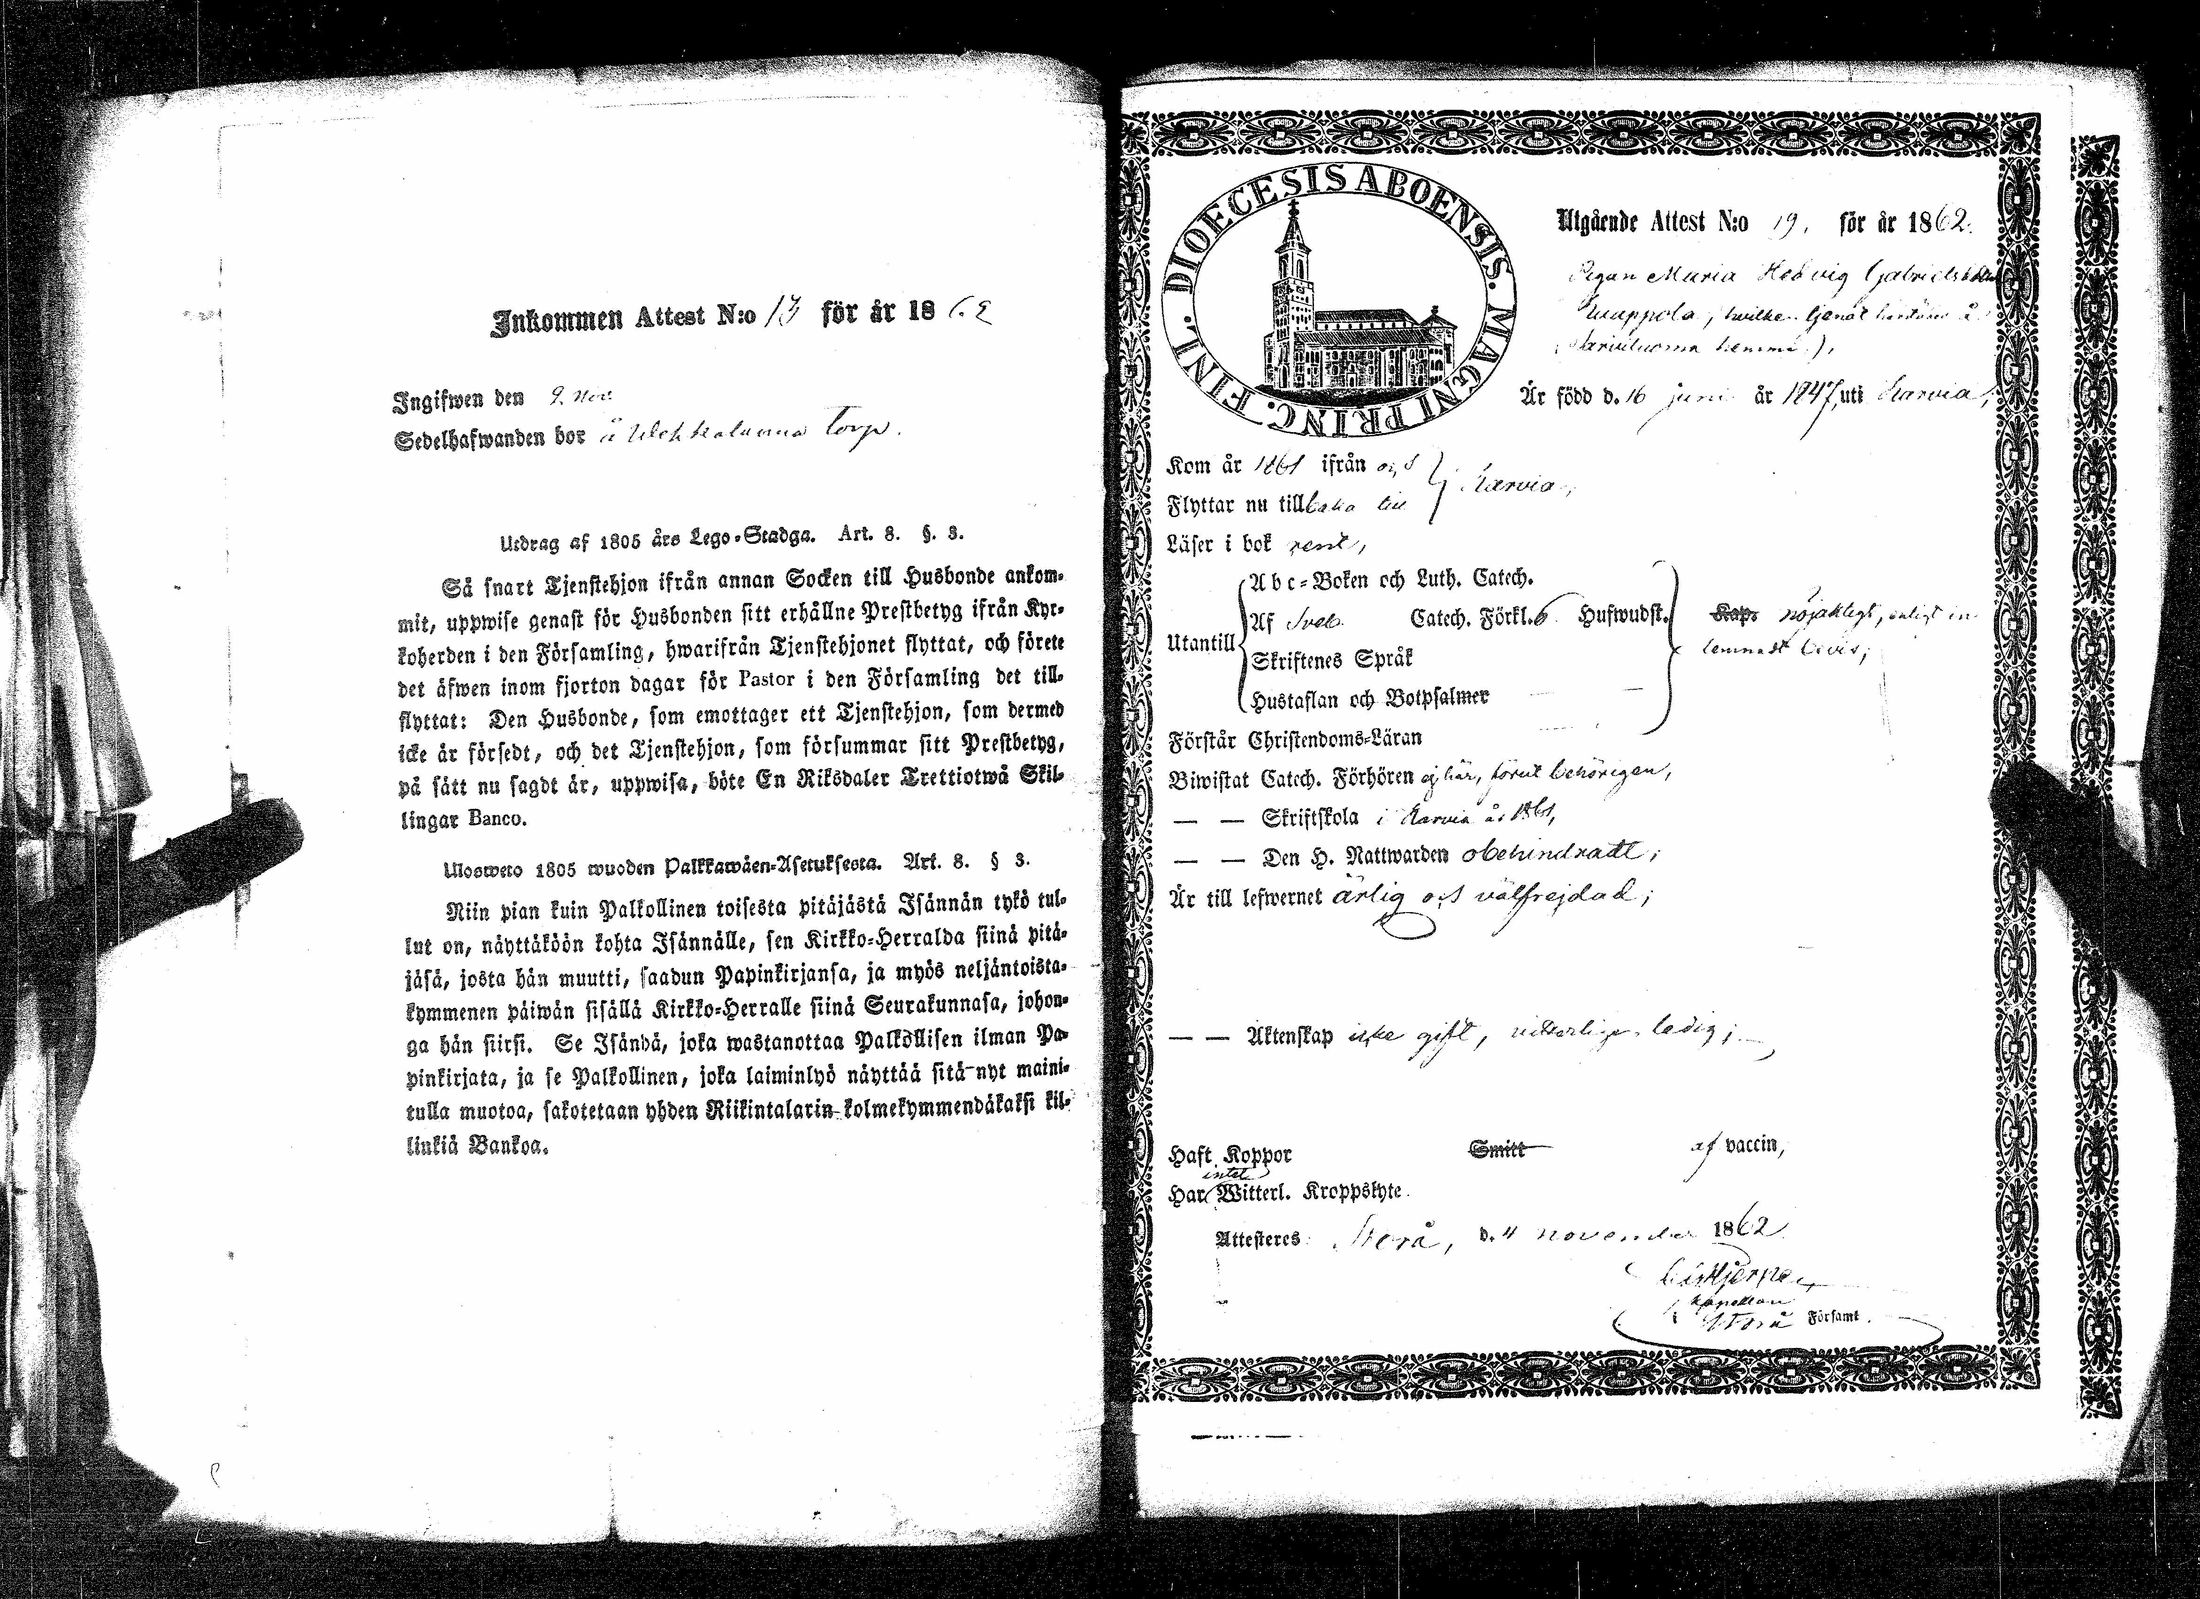 Inkommen Attest N:o 13 för år 1862
Ingifwen den 9 Nov.
Sedelhafwanden bor å Torp.
Utdrag af 1805 års Lego-Stadga. Art. 8. §. 3.
Så snart Tjenstehjon ifrån annan Socken till Husbonde ankom-
mit, uppwise genast för Husbonden sitt erhållne Prestbetyg ifrån Kyr-
koherden i den Församling, hwarifrån Tjenstehjonet flyttat, och förete
det äfwen inom fjorton dagar för Pastor i den Församling det till-
flyttat: Den Husbonde, som emottager ett Tjenstehjon, som dermed
icke är försedt, och det Tjenstehjon, som försummar sitt Prestbetyg,
på sätt nu sagdt är, uppwisa, böte En Riksdaler Trettiotwå Skil-
lingar Banco.
Ulosweto 1805 wuoden Palkkawäen-Asetuksesta. Art. 8. § 3.
Niin pian kuin Palkollinen toisesta pitäjästä Isännän tykö tul-
lut on, näyttäköön kohta Isännälle, sen Kirkko-Herralda siinä pitä-
jäsä, josta hän muutti, saadun Papinkirjansa, ja myös neljäntoista-
kymmenen päiwän sisällä Kirkko-Herralle siinä Seurakunnasa, johon-
ga hän siirsi. Se Isändä, joka wastanottaa Palkollisen ilman Pa-
pinkirjata, ja se Palkollinen, joka laiminlyö näyttää sitä nyt maini-
tulla muotoa, sakotetaan yhden Riikintalarin kolmekymmendäkaksi kil-
linkiä Bankoa.
DIOECESIS ABOENSIS. MAGNI PRINC. FINL.
Utgående Attest N:o 19, för år 1862.
Pigan Maria Hedvig Gabrielsdotter
hemman),
Är född d. 16 juni år 1847, uti Karvia;
Kom år 1861 ifrån och
Flyttar nu tillbaka till } Karvia;
Läser i bok rent,
Utantill
Abc-Boken och Luth. Catech.
Af Sveb. Catech. Förkl. 6 Hufwudst.
Skriftenes Språk
Hustaflan och Botpsalmer
Kap. nöjaktigt, enligt in-
lemnadt bevis;
Förstår Christendoms-Läran
Biwistat Catech. Förhören ej här, förut behörigen,
— — Skriftskola i Karvia år 1861,
— — Den H. Nattwarden obehindradt;
Är till lefwernet ärlig och välfrejdad;
— — Äktenskap icke gift, ledig;
Haft Koppor Smitt af vaccin,
Har intet Witterl. Kroppslyte.
Attesteres Storå, d. 4 november 1862
kapellan
Storå Församl.